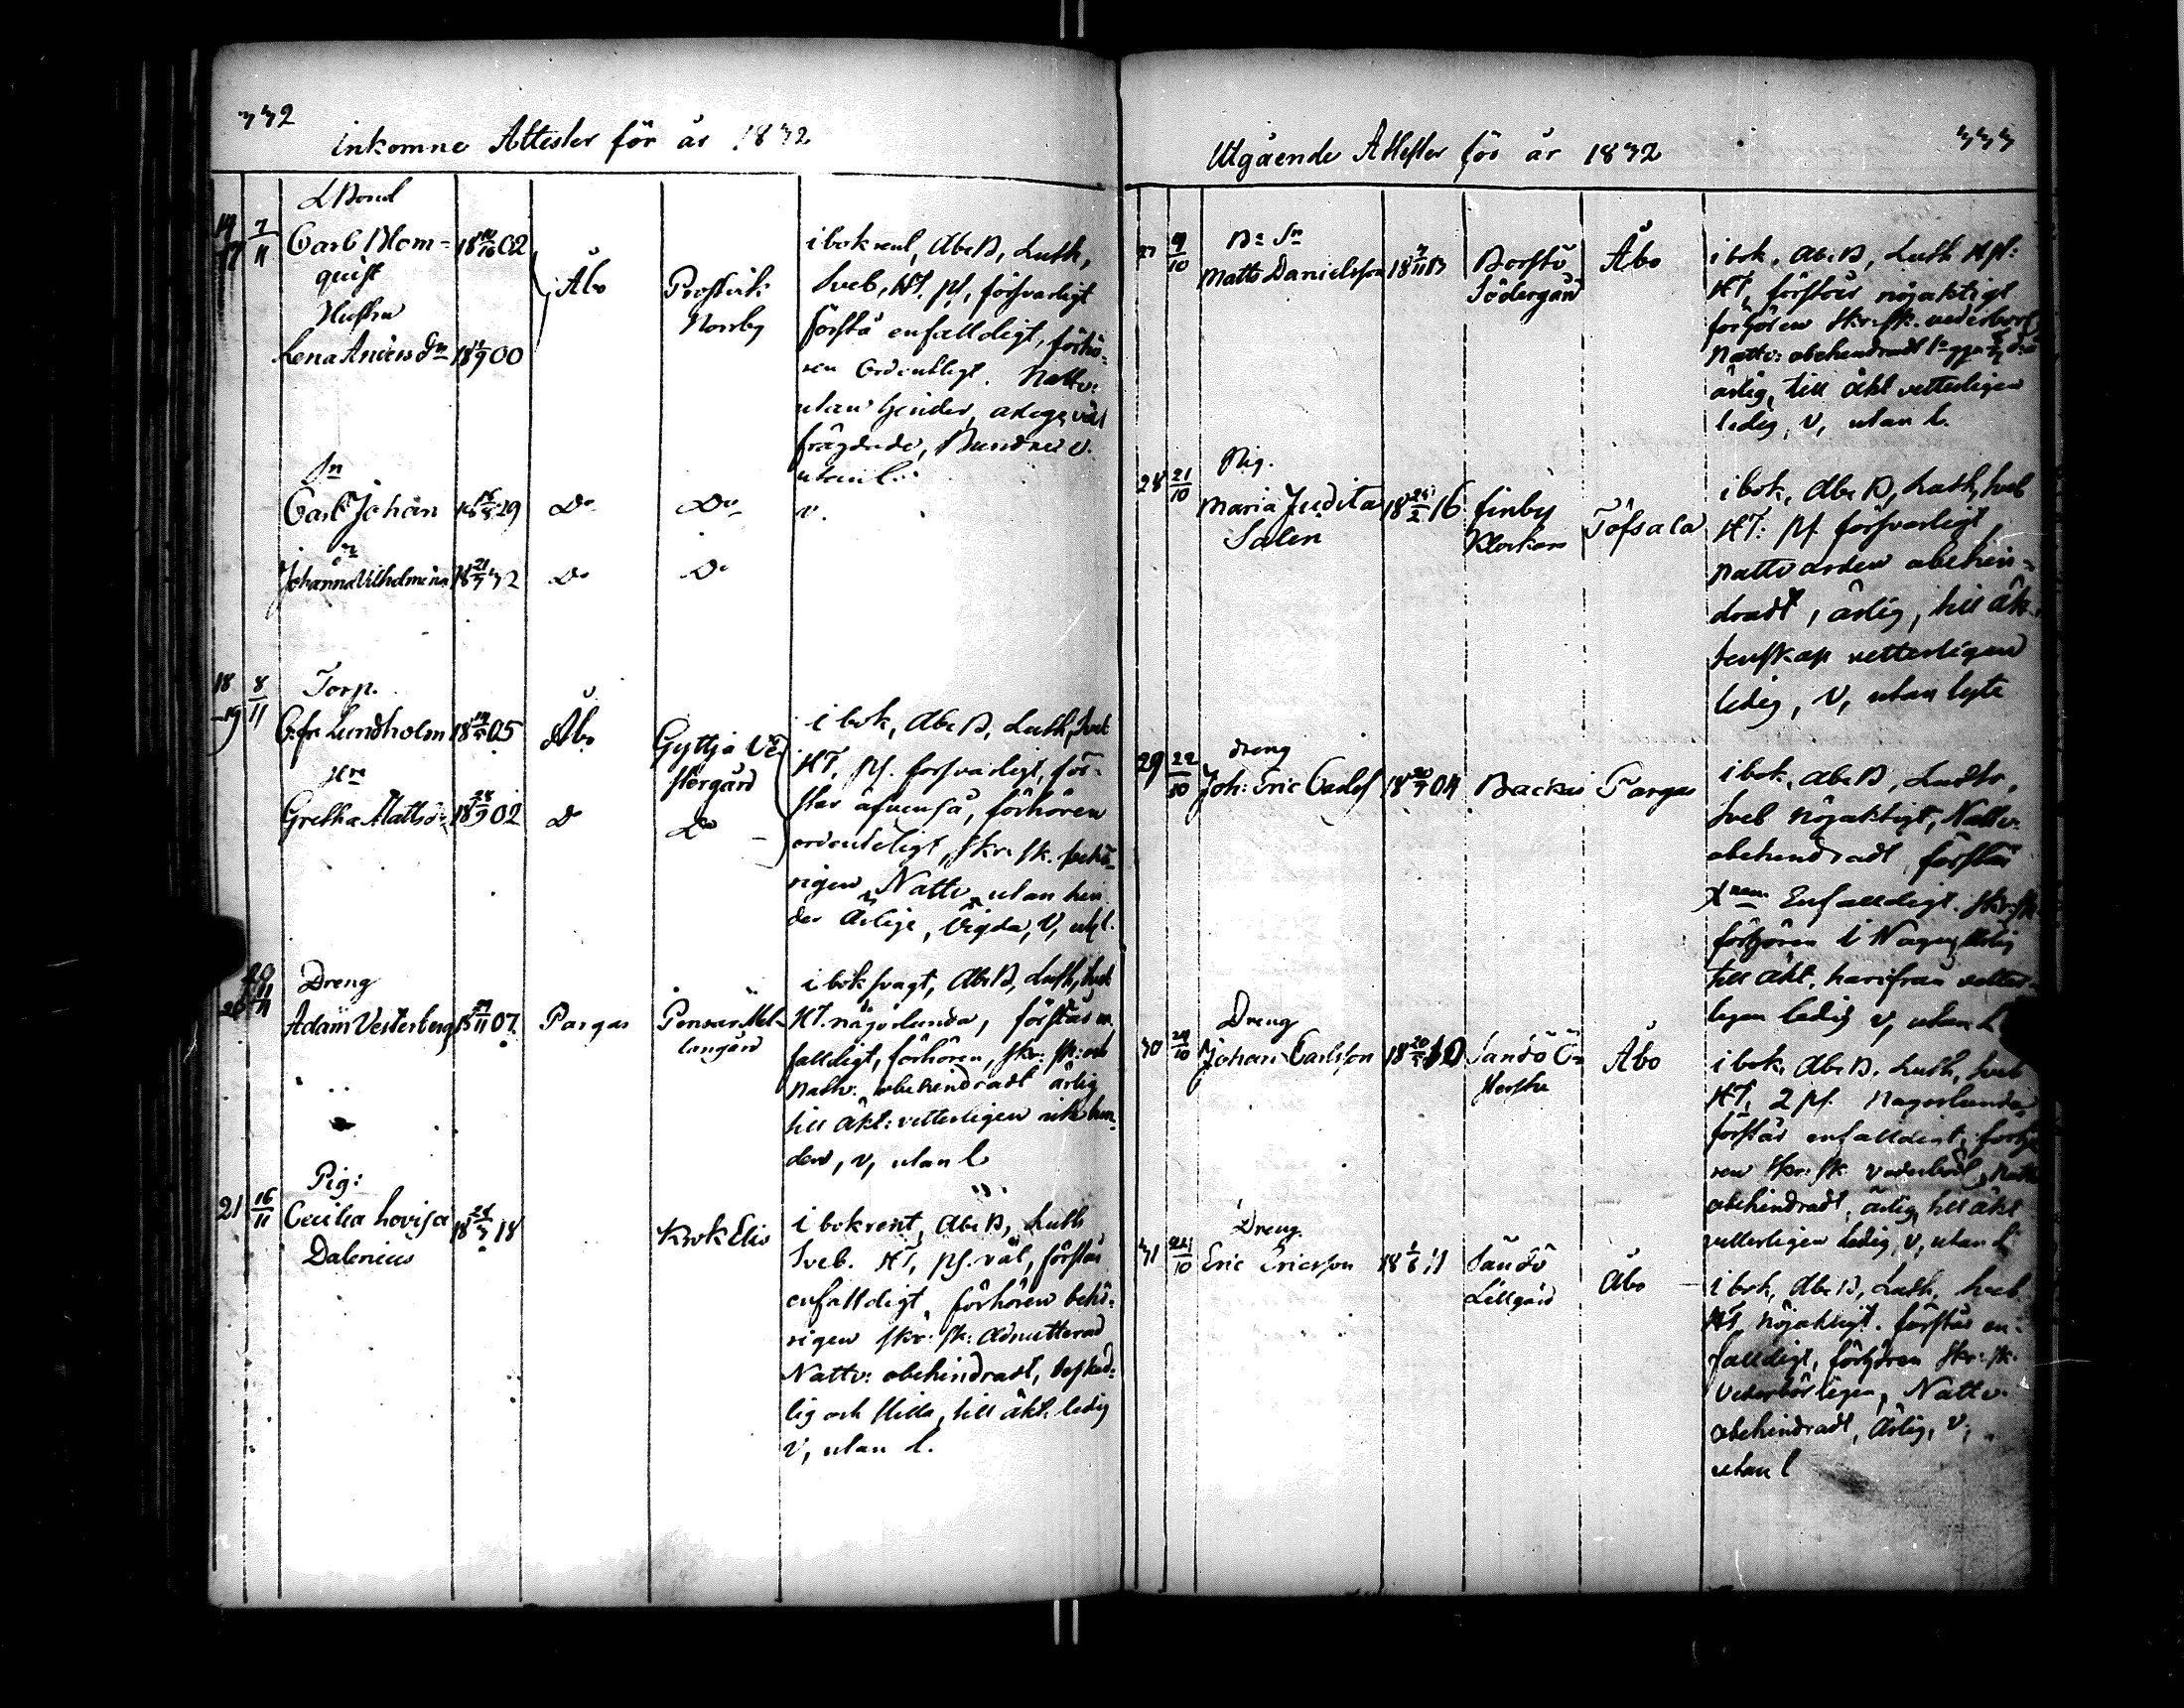 332
Inkomne Attester för år 1832
LBond
14 17 7/11 Carl Blom= 18 10/10 02
quist
Hustru
Lena Anders dr 18 9 00
Åbo
Prostvik
Norrby
i bok rent, AbcB, Luth,
Sveb, HT. ps, försvarligt
förstå enfalldigt, förhö=
ren Ordentligt. Nattv:
utan hinder, ärlige, väl
frägdade, Bundne v.
utan l.
Sn
Carl Johan 18 29 Do Do v.
Johanna Vilhelmina 18 21/7 32 Do Do
18 19 8/11 Torp.
Lundholm 18 05 Åbo Gyttja Ve
stergård
Hu
Gretha Mattsdr 18 28/9 02 Do Do
i bok, AbcB, Luth, Sveb
HT, ps. försvarligt, för-
står äfvenså, förhören
ordenteligt, skr: sk. behö-
rigen, Nattv. utan hin
der Ärlige, Vigda, V, ut l.
20 11
Dreng
Adam Vesterberg 18 11 07 Pargas Pensar Mel-
langård
i bok svagt, AbcB, Luth, Sveb
HT. någorlunda, förstår en
falldigt, förhören, skr: sk: och
Nattv. obehindradt ärlig
till äkt: vetterligen icke bun
den, v, utan l
Pig:
21 16/11 Cecilia Lovisa 18 24/3 18 Krok Elis
Dalenius
i bok rent, AbcB, Luth
Sveb. HT, ps. väl, förstår
enfalldigt, förhören behö=
rigen skr: sk: admitterad
Nattv: obehindradt, beskед=
lig och stilla, till äkt. ledig
V, utan l.
333
Utgående Attester för år 1832
27 9/10 B: Sn
Matts Danielsson 18 11 13 Borstö Åbo
Södergård
i bok, AbcB, Luth Hpl:
HT, förstår nöjaktigt
förhören skr: sk. vederbörl
Nattv: obehindradt
ärlig, till äkt vetterligen
ledig, V, utan l.
28 21/10 Pig.
Maria Judita 18 24/2 16 Finby Töfsala
Salin Klockars
i bok, AbcB, Luth, Sveb
HT: ps. försvarligt,
Nattvarden obehin=
dradt, ärlig, till äk
tenskap vetterligen
ledig, V, utan lyte
29 22/10 Dreng
Joh: Eric Carlss 18 20/7 04 Backas Pargas
i bok, AbcB, Luth,
Sveb nöjaktigt, Nattv:
obehindradt, förstår
Xnum Enfalldigt. Skr: sk
förhören i Nagu, ärlig
till äkt. härifrån vetter=
ligen ledig v, utan l
30 24/10 Dreng
Johan Carlsson 18 20 10 Sandö Ö= Åbo
i bok, AbcB. Luth, Sveb
HT, 2 ps. Nagorlunda,
förstår enfalldigt, förhö
ren skr: sk vederbörl, Nattv
obehindradt, ärlig, till äkt
vetterligen ledig, v, utan l
31 24/10 Dreng
Eric Ericsson 18 1/6 11 Sandö Åbo
Lillgård
i bok, AbcB, Luth, Sveb
HT, nöjaktigt. förstår en-
falldigt, förhören Skr: sk.
Vederbörligen, Nattv.
obehindradt, Ärlig, v,
utan l